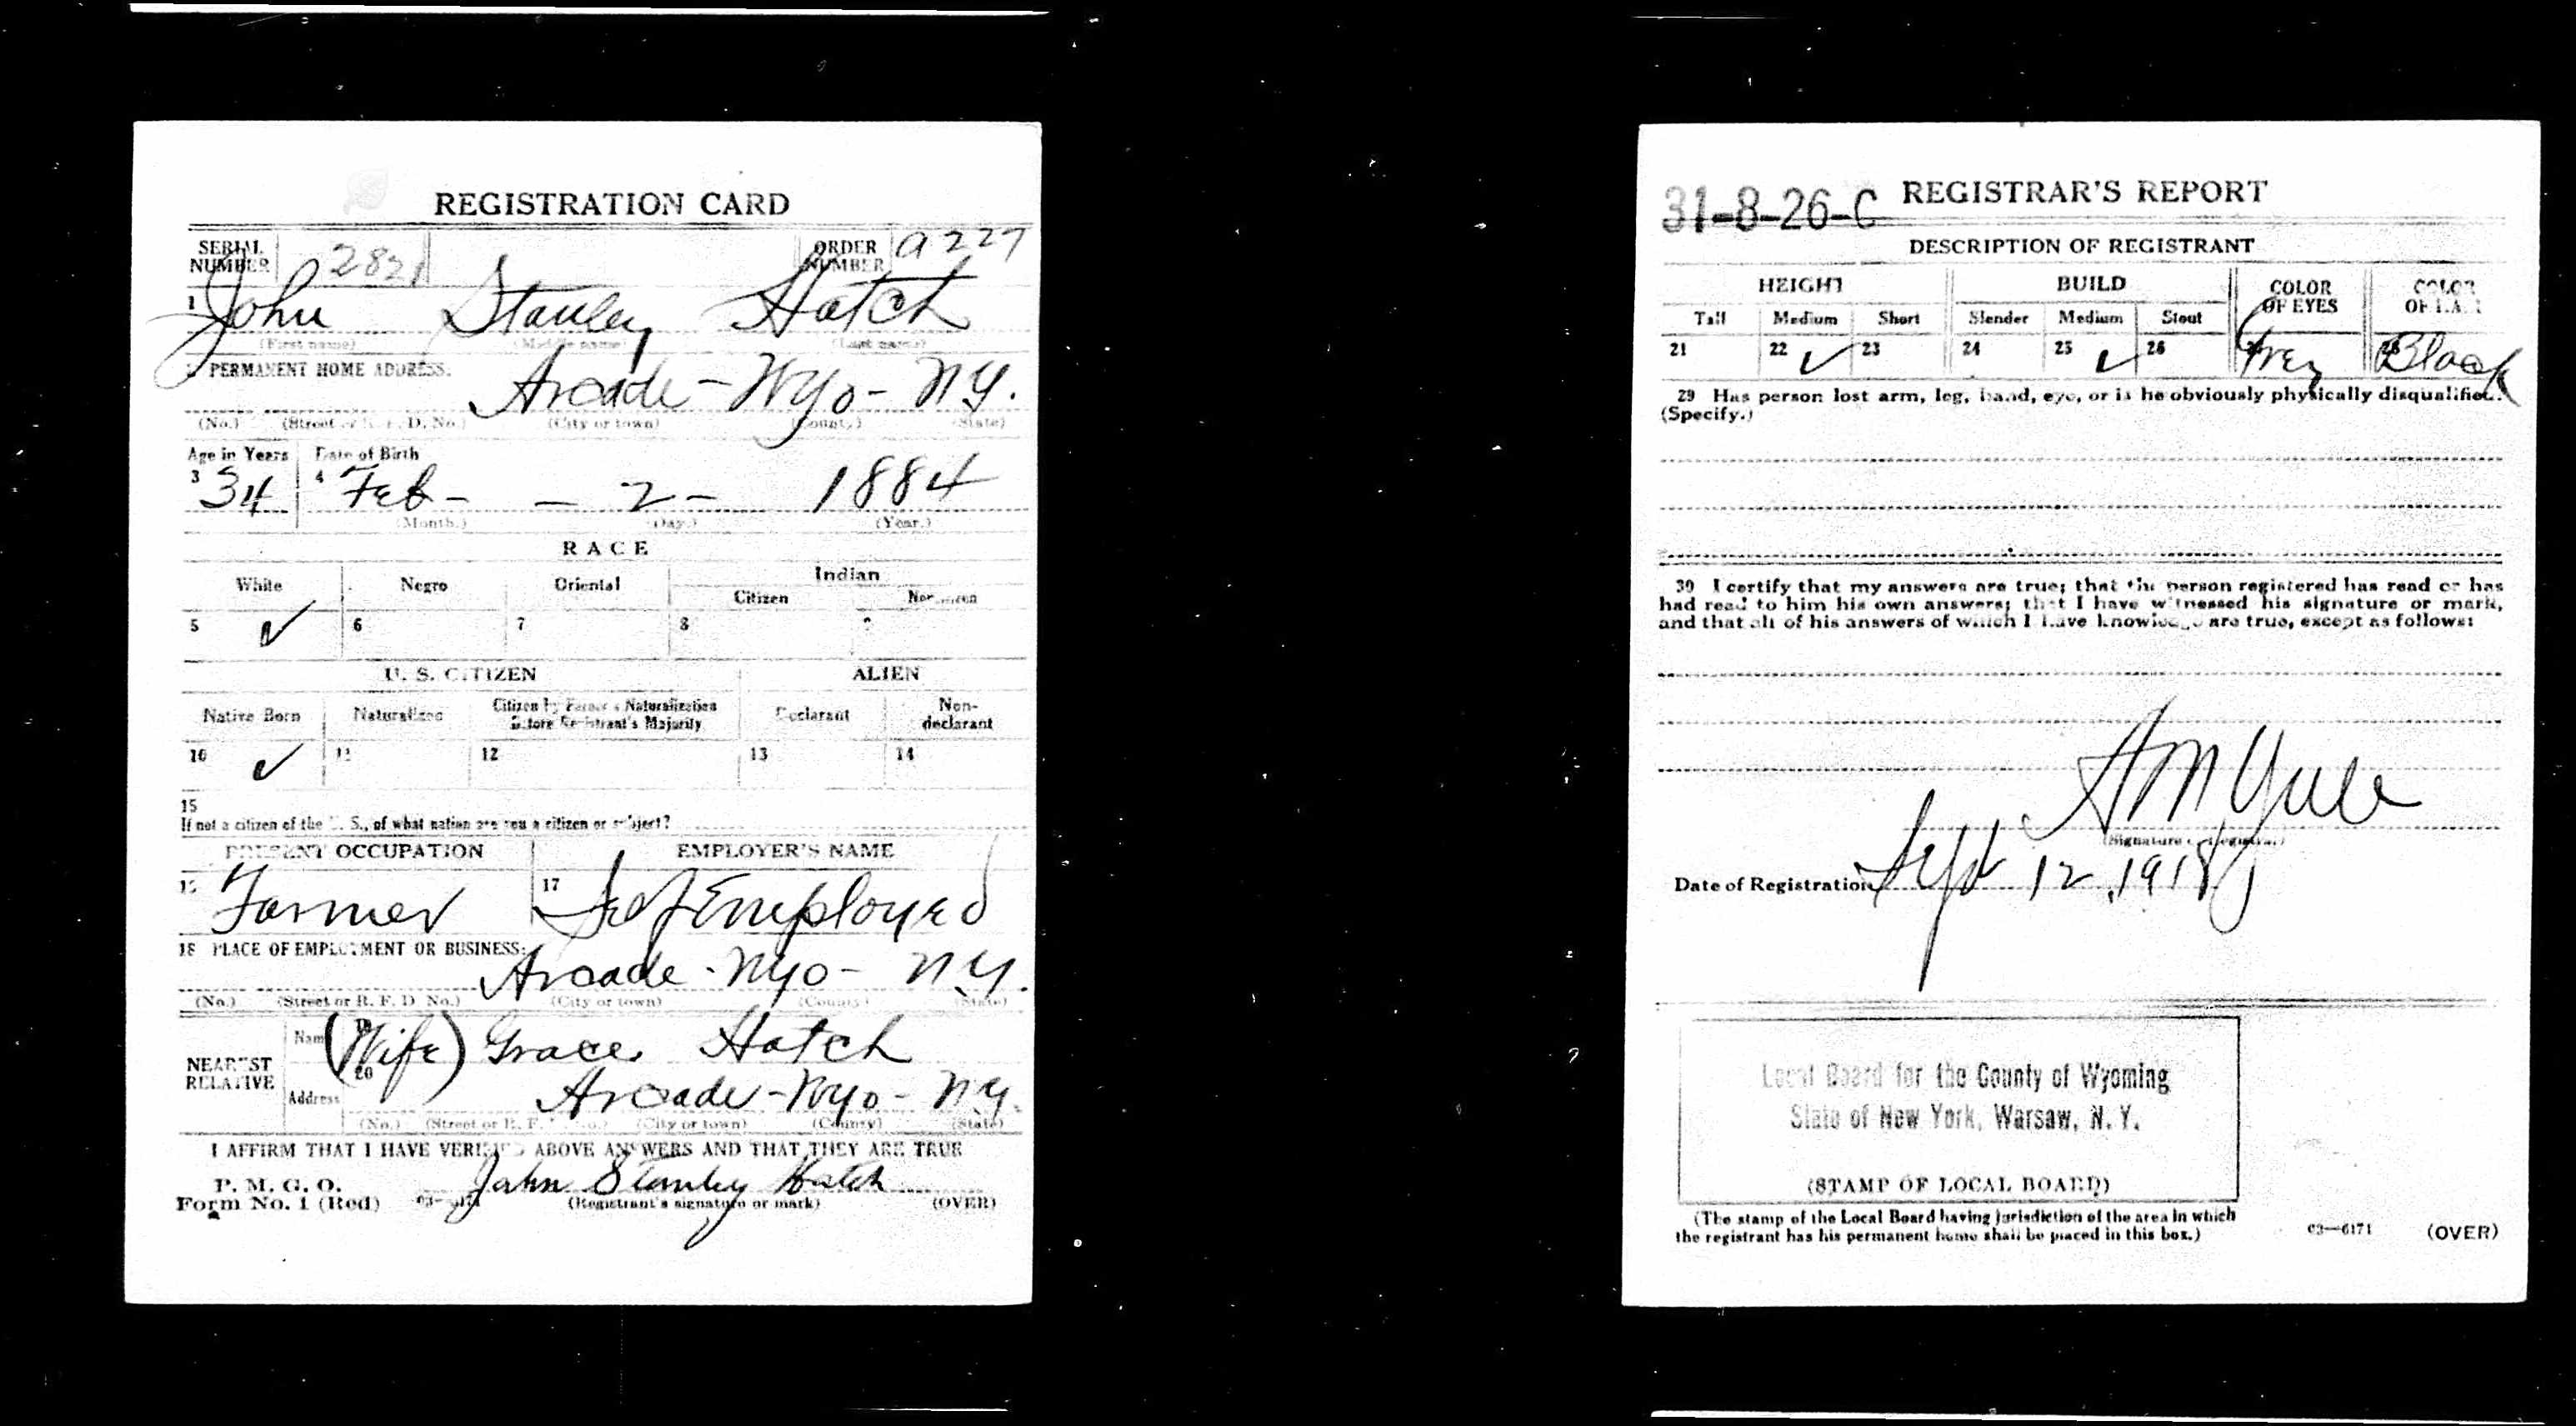 REGISTRATION CARD
SERIAL NUMBER 2821 ORDER NUMBER a 227
1 John Stanley Hatch
(First name) (Middle name) (Last name)
2 PERMANENT HOME ADDRESS:
Arcade - Wyo - N.Y.
(No.) (Street or R. F. D. No.) (City or town) (County) (State)
Age in Years Date of Birth
3 34 4 Feb - - 2 - 1884
(Month.) (Day.) (Year.)
RACE
White Negro Oriental Indian
Citizen Noncitizen
5 ✓ 6 7 8 9
U. S. CITIZEN ALIEN
Native Born Naturalized Citizen by Father's Naturalization Before Registrant's Majority Declarant Non-declarant
10 ✓ 11 12 13 14
15
If not a citizen of the U. S., of what nation are you a citizen or subject?
PRESENT OCCUPATION EMPLOYER'S NAME
16 Farmer 17 Self Employed
18 PLACE OF EMPLOYMENT OR BUSINESS:
Arcade - Wyo - N.Y.
(No.) (Street or R. F. D. No.) (City or town) (County) (State)
NEAREST RELATIVE
Name 19 (Wife) Grace Hatch
Address 20 Arcade - Wyo - N.Y.
(No.) (Street or R. F. D. No.) (City or town) (County) (State)
I AFFIRM THAT I HAVE VERIFIED ABOVE ANSWERS AND THAT THEY ARE TRUE
P. M. G. O.
Form No. 1 (Red) John Stanley Hatch
(Registrant's signature or mark) (OVER)
31-8-26-C REGISTRAR'S REPORT
DESCRIPTION OF REGISTRANT
HEIGHT BUILD COLOR OF EYES COLOR OF HAIR
Tall Medium Short Slender Medium Stout
21 22 ✓ 23 24 25 ✓ 26 27 Grey 28 Black
29 Has person lost arm, leg, hand, eye, or is he obviously physically disqualified?
(Specify.)
30 I certify that my answers are true; that the person registered has read or has
had read to him his own answers; that I have witnessed his signature or mark,
and that all of his answers of which I have knowledge are true, except as follows:
(Signature of Registrar)
Date of Registration Sept 12, 1918
Local Board for the County of Wyoming
State of New York, Warsaw, N. Y.
(STAMP OF LOCAL BOARD)
(The stamp of the Local Board having jurisdiction of the area in which
the registrant has his permanent home shall be placed in this box.)
03—6171 (OVER)